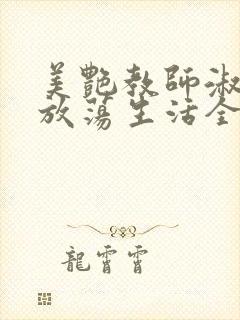 美艷教師淑
放蕩生活全
龍霄霄